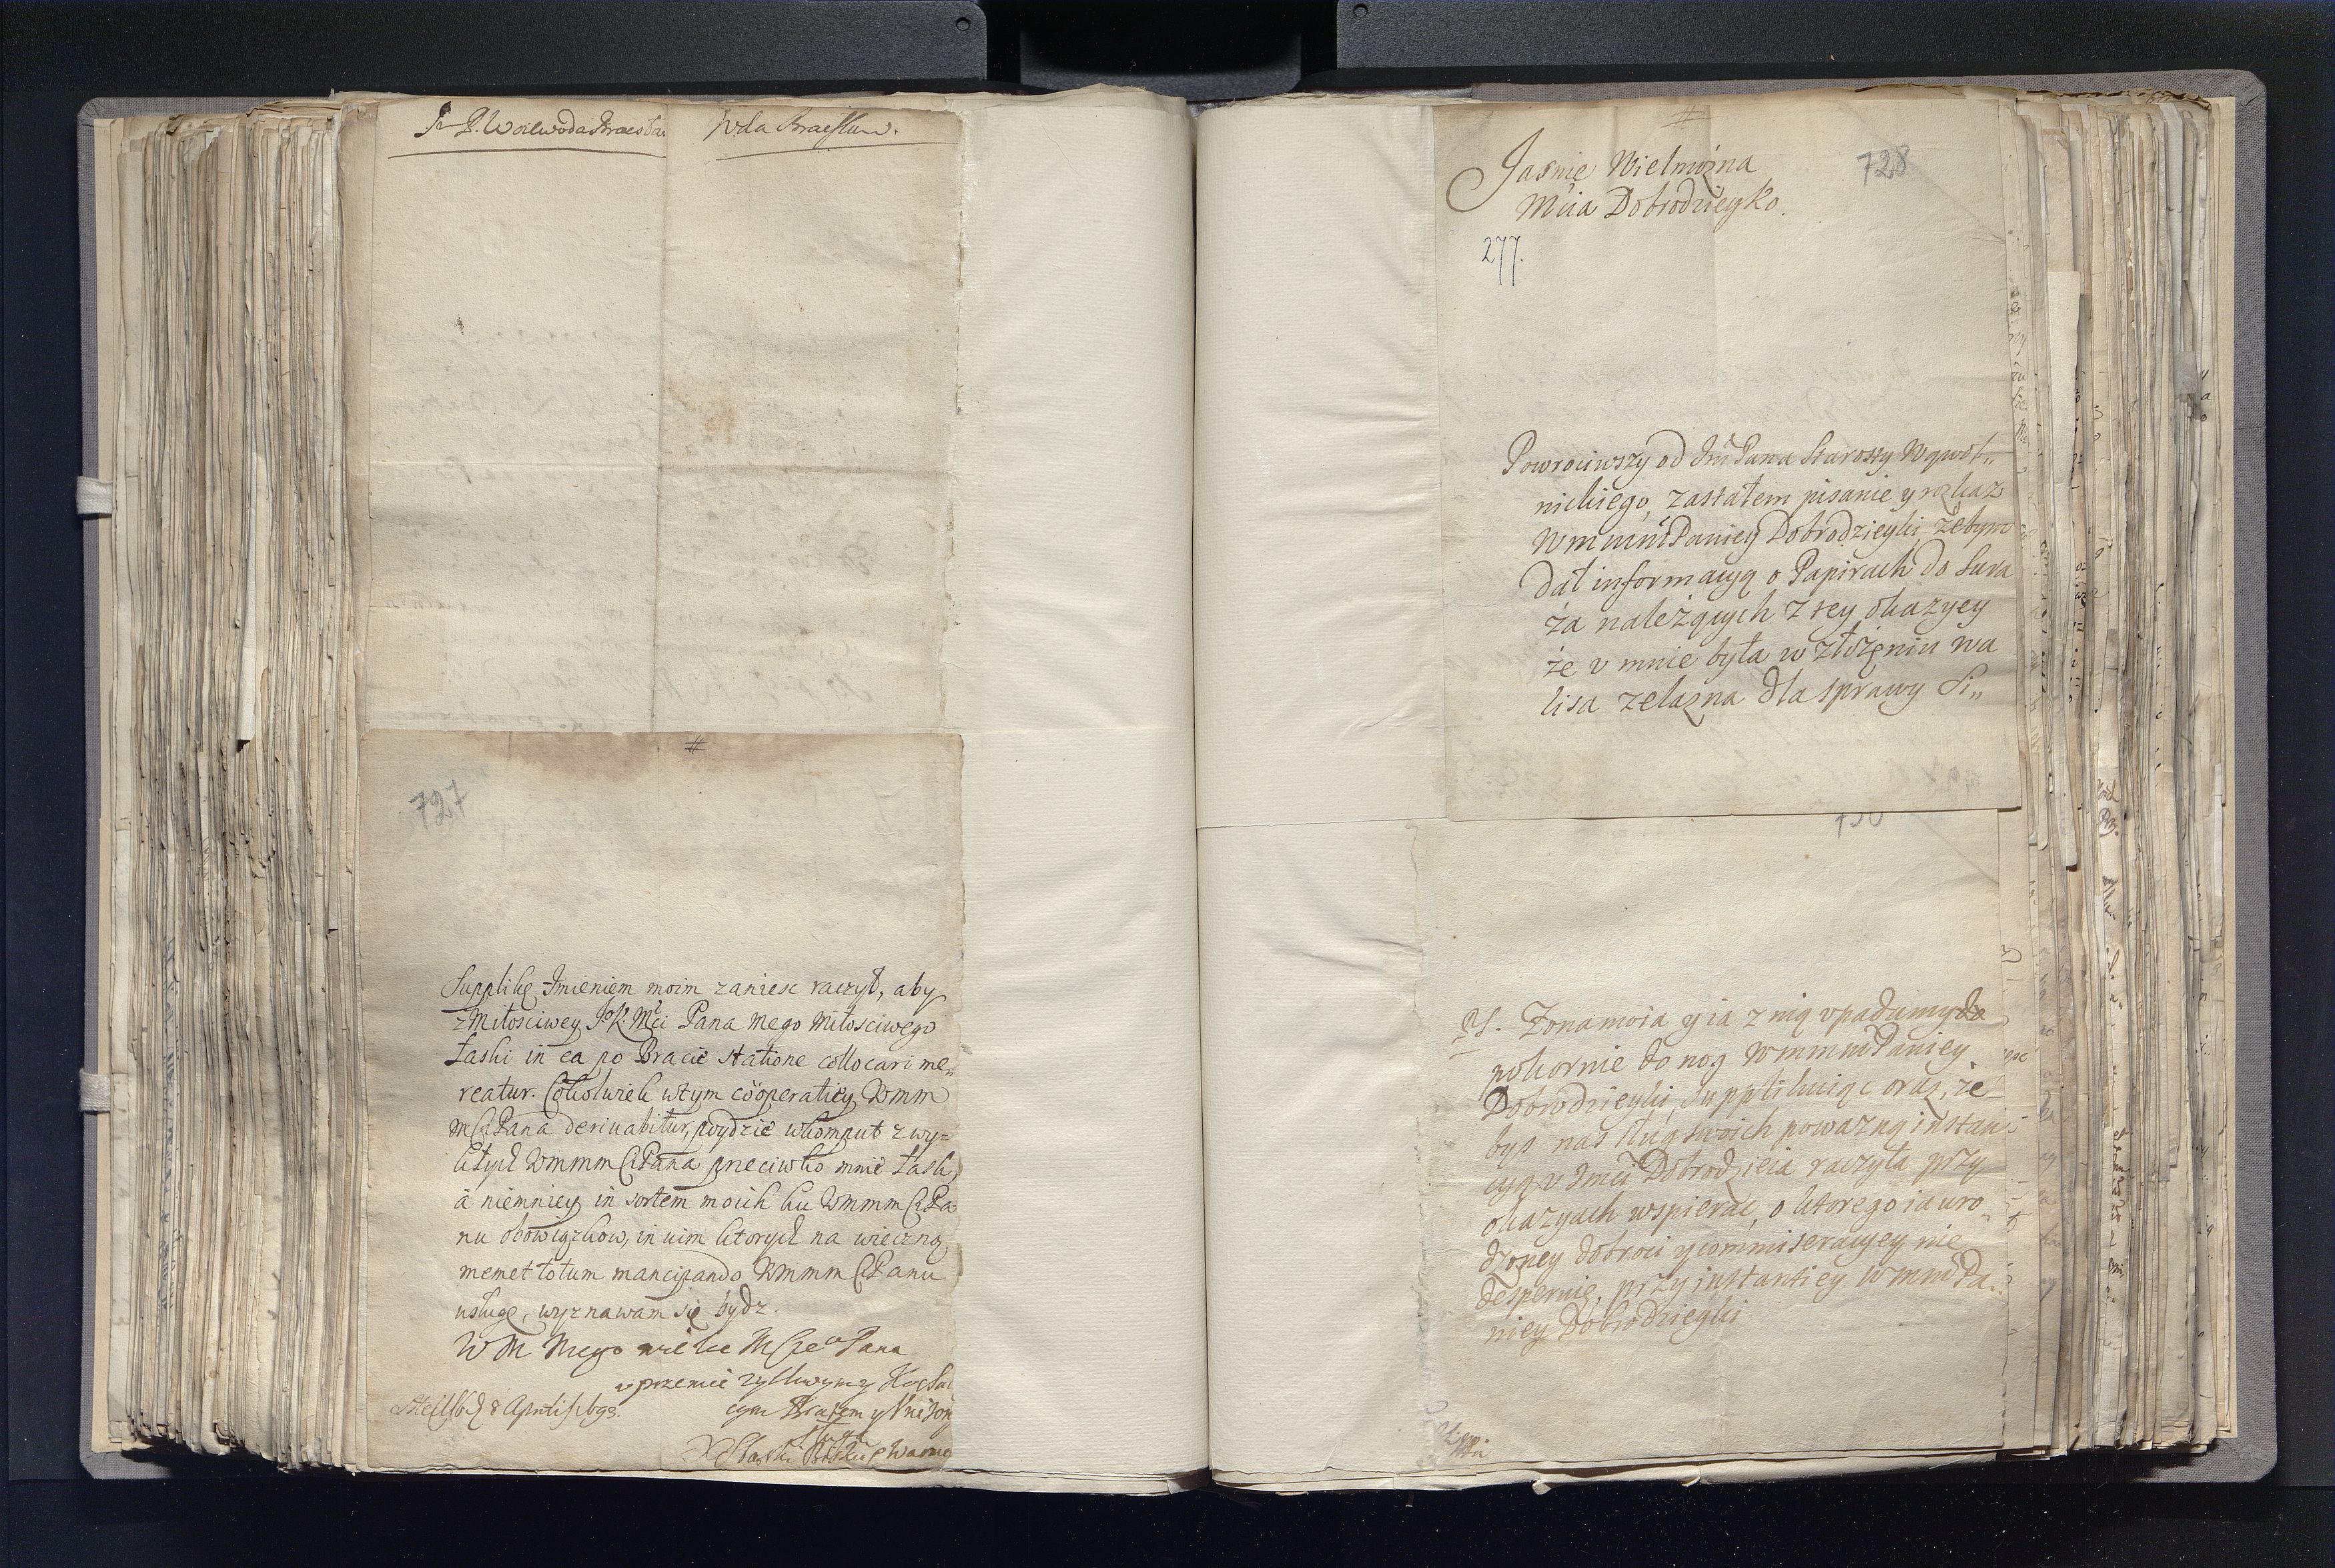 P. Woiewoda Bracław
Wda Bracław.
#
727
Supplikę Imieniem moim zaniesc raczył, aby
z Miłosciwey JoK: Mci Pana mego Miłosciwego
Łaski in ea po Bracie statione collocari me„
reatur. Cokolwiek wtym cooperatiey Wmm
MCiPana deriuabitur, poydzie wkomput z wy=
kłych WmmmCiPana przeciwko mnie łask,
a niemniey in sortem moich ku WmmmCiPa
nu obowiązkow, in uim ktorych na wieczną
memet totum mancipando WmmmCiPanu
usługę, wyznawam się bydz.
W M Mego wielce MCiego Pana
uprzeimie zyśliwym y
8 Aprilis 1693.
cym Bratem y
sługą
Biskup Warm
#
Jasnie Wielmożna
728
Mcia Dobrodzieyko.
277.
Powrociwszy od Jm Pana Starosty Wywol„
nickiego, zastałem pisanie y rozkaz
WmmmPaniey Dobrodzieyki, żebym
dał informacyą o Papirach do Sura
ża należących z tey okazyey
że v mnie była w złożęniu wa
lisa zelazna dla sprawy Si„
PS. Zona moia y ia z nią vpadamy do
pokornie do nog WmmmPaniey
Dobrodzieyki, supplikuiąc oraz, że
bys nas sług swoich powazną instan
cyą v Jmci Dobrodzieia raczyła przy
okazyach wspierac, o ktorego ia wro„
dzoney dobroci y commiseracyey nie
desperuię, przy instantiey WmmPa„
niey Dobrodzieyki